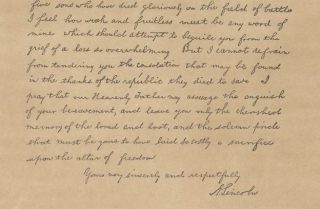 five sons who have died gloriously on the field of battle
I feel how weak and fruitless must be any word of
mine which should attempt to beguile you from the
grief of a loss so overwhelming But I cannot refrain
from tendering you the consolation that may be found
in the thanks of the republic they died to save I
pray that our Heavenly Father may assuage the anguish
of your bereavement, and leave you only the cherished
memory of the loved and lost, and the solemn pride
that must be yours to have laid so costly a sacrifice
upon the altar of freedom
Yours very sincerely and respectfully
A. Lincoln